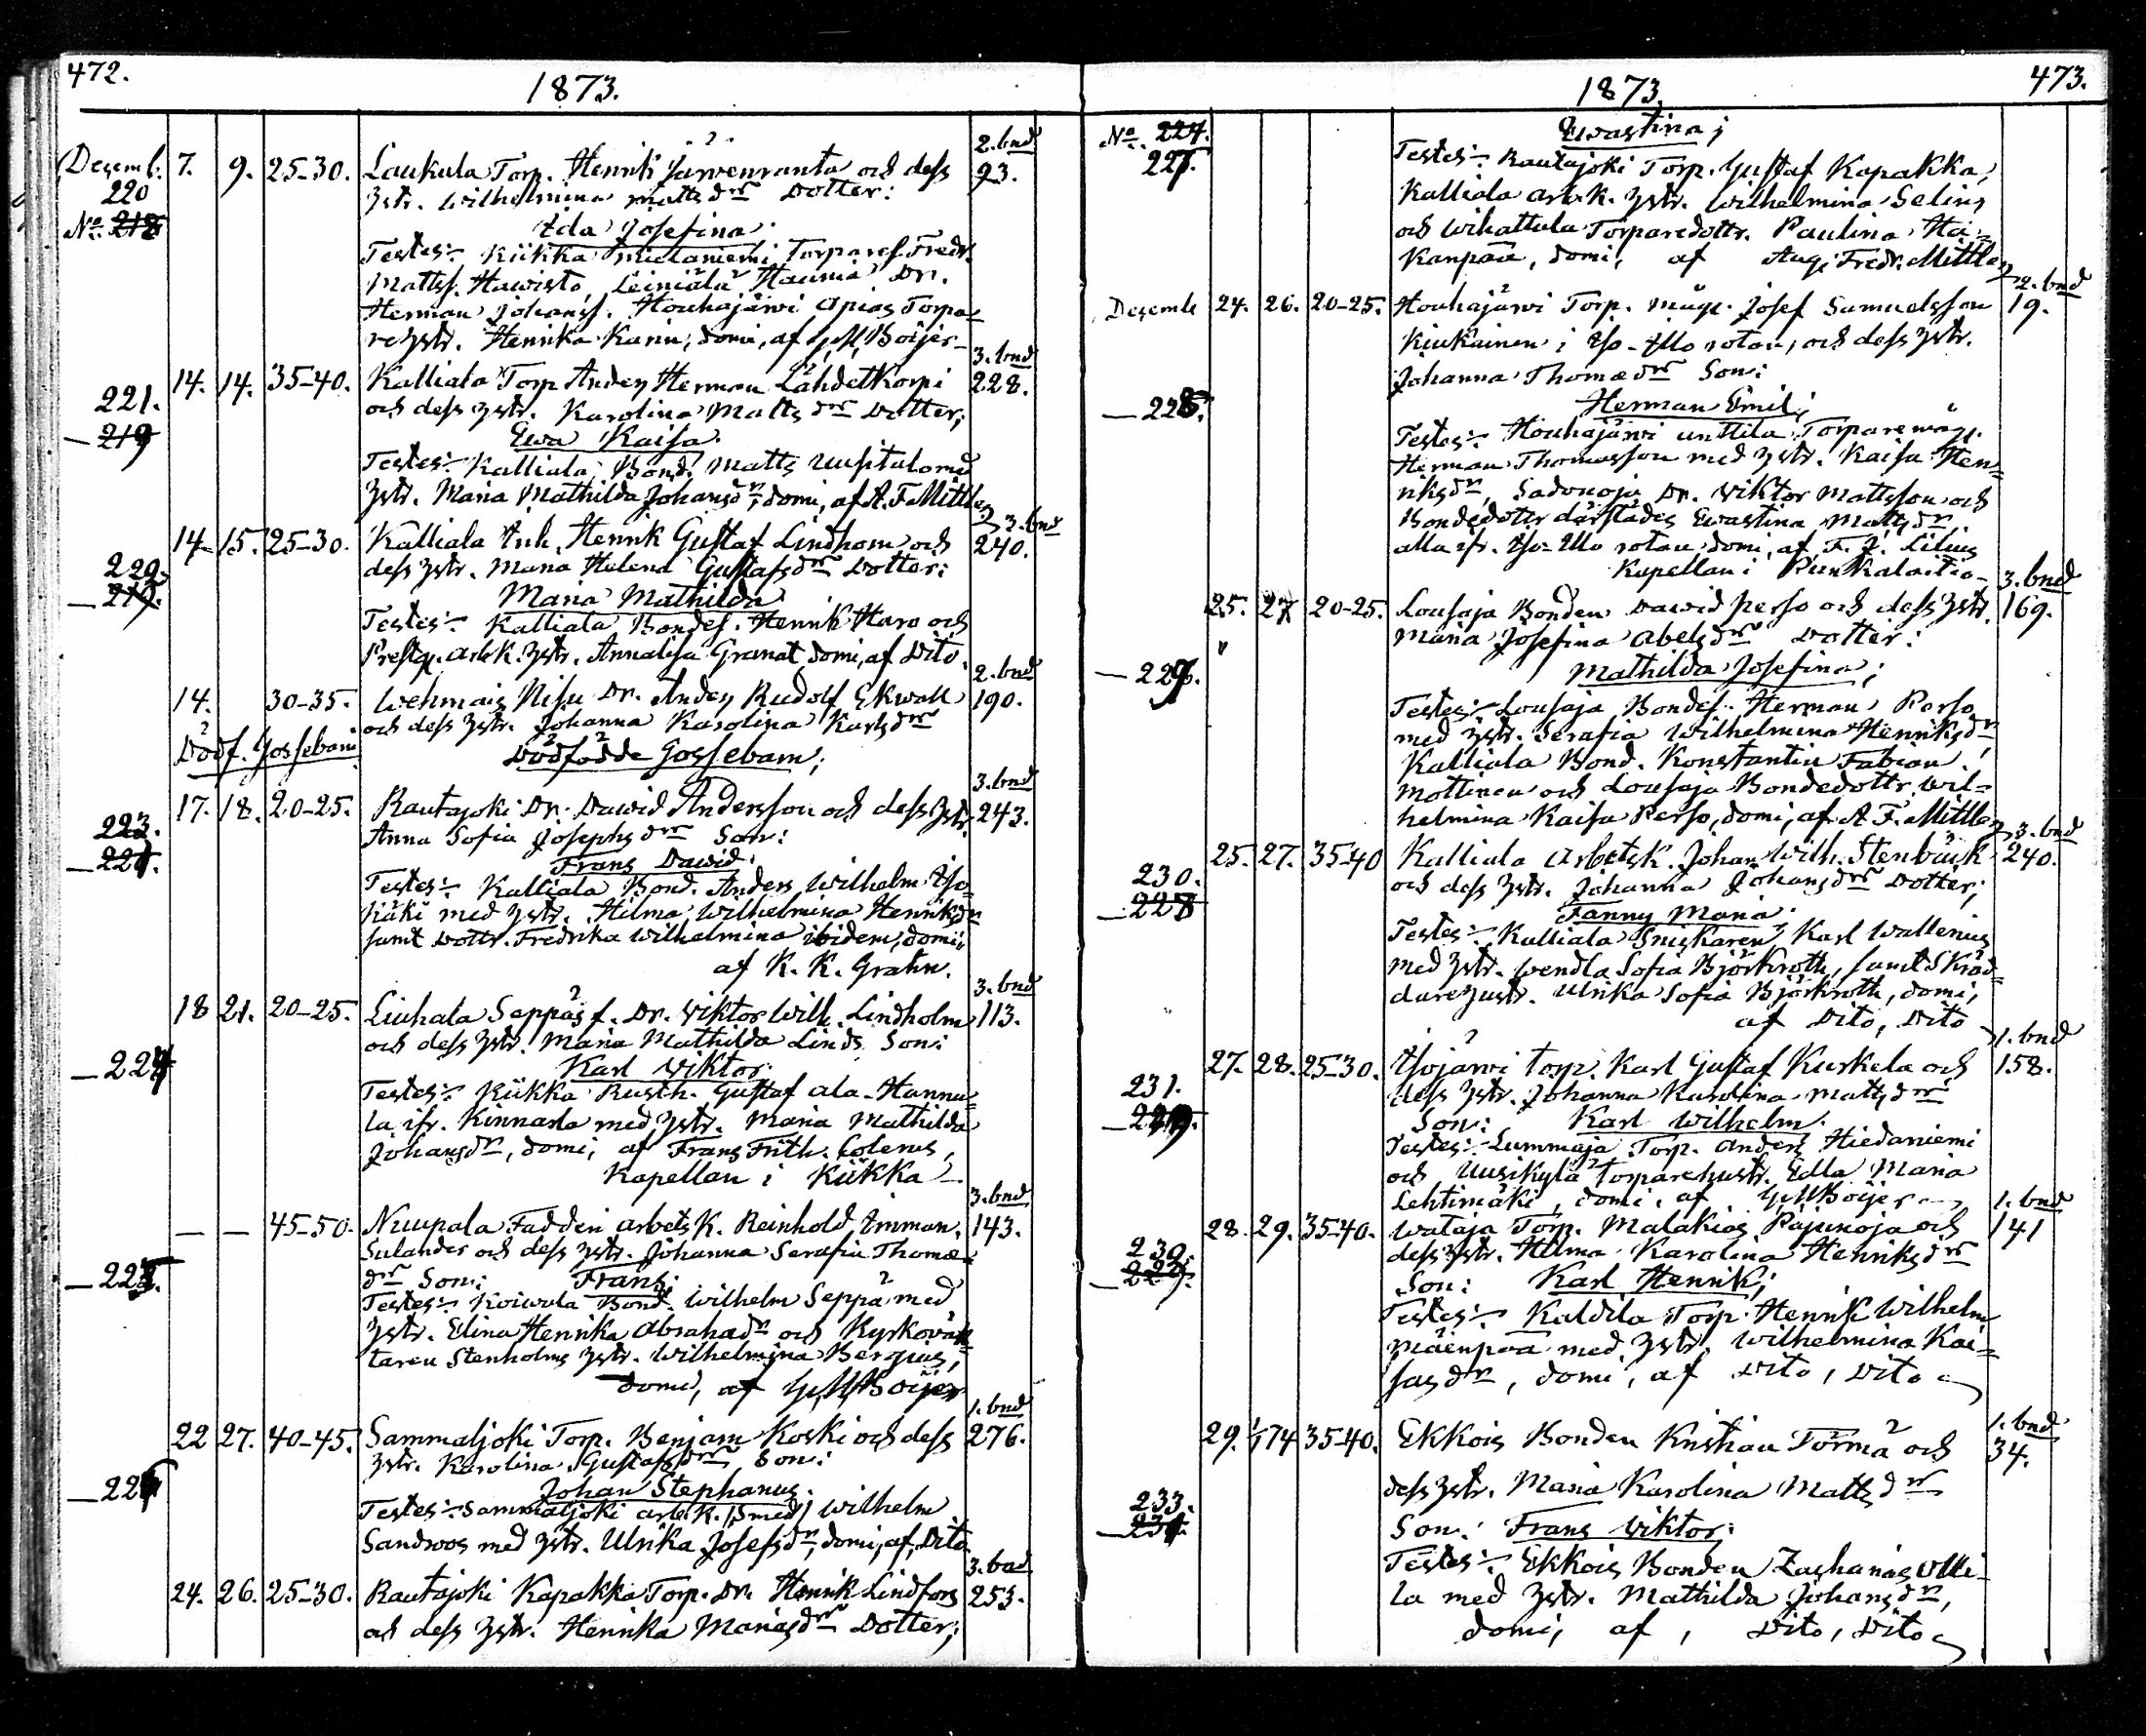 472.
1873.
Dezemb. 7. 9. 25-30. Laukula Torp. Henrik Jarvenranta och dess 2. bnd 93.
220
No. 218
Zstr. Wilhelmina Mattsdr Dotter:
Ida Josefina:
Testes:- Kiikka Mielaniemi Torpares. Fredr.
Mattss. Hawisto, Leiniälä Hauma Dr.
Herman Johanss. Houhajärwi Torpa-
re Zstr. Henrika Karin, domi, af Boijer-
14. 14. 35-40. Kalliala Torp Anders Herman Lähdetkorpi 3. bnd 228.
221.
- 219
och dess Zstr. Karolina Mattsdr Dotter;
Ewa Kaisa.
Testes:- Kalliala Bond. Matts Uusitalo med
Zstr. Maria Mathilda Johansdr, domi, af A. F. Mittler
14. 15. 25-30. Kalliala Inh. Henrik Gustaf Lindhom och 3. bnd 240.
222.
dess Zstr. Maria Helena Gustafsdr Dotter:
Maria Mathilda.
Testes:- Kalliala Bondes. Henrik Haro och
Prestg. arbk. Zstr. Annalisa Granat, domi, af Dito.
14. 30-35. Wehmais Nisu Dr. Anders Rudolf Ekwall 2. bnd 190.
och dess Zstr. Johanna Karolina Karlsdr
Dödf. Gossebarn
Dödfödde Gossebarn;
17. 18. 20-25. Rautajoki Dr. Dawid Andersson och dess Zstr. 3. bnd 243.
223.
- 221.
Anna Sofia Josephsdr Son:
Frans Dawid.
Testes:- Kalliala Bond. Anders Wilhelm Iso-
Käki med Zstr. Hilma Wilhelmina Henriksdr
samt Dottr. Fredrika Wilhelmina ibidem, domi,
af K. K. Grahn.
18 21. 20-25. Liuhala Seppäs f. Dr. Viktor Wilh. Lindholm 3. bnd 113.
och dess Zstr. Maria Mathilda Linds Son:
- 224
Karl Wiktor.
Testes:- Kiikka Rusth. Gustaf Ala-Hannu-
la ifr. Kinnarla med Zstr. Maria Mathilda
Johansdr, domi, af Frans Frith. Colerus,
Kapellan i Kiikka-
- - 45-50. Nuupala Fadderi arbetsk. Reinhold Imman. 3. bnd 143.
Sulander och dess Zstr. Johanna Serafia Thomæ-
- 225.
dr Son: Frans:
Testes:- Koiwula Bond. Wilhelm Seppä med
Zstr. Elina Henrika Abrahadr och Kyrkovak-
taren Stenholms Zstr. Wilhelmina Bergius,
domi, af Boijer
22 27. 40-45. Sammaljoki Torp. Benjam Koski och dess 1. bnd 276.
Zstr. Karolina Gustafsdr Son:
- 226
Johan Stephanus.
Testes:- Sammaljoki arbk. /:Smed/ Wilhelm
Sandroos med Zstr. Ulrika Josefsdr, domi, af, Dito
24. 26. 25-30. Rautajoki Kapakka Torp. Dr. Henrik Lindfors 3. bnd 253.
och dess Zstr. Henrika Mariasdr Dotter;
1873.
473.
No. 224.
227.
Ewastina;
Testes:- Rautajoki Torp. Gustaf Kapakka,
Kalliala arb.k. Zstr. Wilhelmina Selins
och Wihattula Torparedottr. Paulina Hii-
Kanpää, domi, af Aug. Fredr. Mittler
Dezemb 24. 26. 20-25. Houhajärwi Torp. måg. Josef Samuelsson 2. bnd 19.
Kiukainen i Iso-Illo rotan, och dess Zstr.
Johanna Thomædr Son:
- 228.
Herman Emil;
Testes:- Houhajärwi Unttila Torparemåg.
Herman Thomasson med Zstr. Kaisa Hen-
riksdr, Sadonoja Dr. Wiktor Mattsson och
Bondedottr därstädes Ewastina Mattsdr
alla ifr. Iso-Illo rotan domi, af F. J. Lilius
Kapellan i Punkalaitio-
25. 27 20-25. Lousaja Bonden Dawid Perso och dess Zstr. 3. bnd 169.
Maria Josefina Abelsdr Dotter:
- 229.
Mathilda Josefina;
Testes:- Lousaja Bondes. Herman Perso
med Zstr. Serafia Wilhelmina Henriksdr
Kalliala Bond. Konstantin Fabian
Mottinen och Lousaja Bondedottr. Wil-
helmina Kaisa Perso, domi, af A. F. Mittler
25. 27. 35-40 Kalliala Arbetsk. Johan Wilh. Stenbäck 3. bnd 240.
230.
- 228
och dess Zstr. Johanna Johansdr Dotter;
Fanny Maria.
Testes:- Kalliala Sniskaren Karl Wallenius
med Zstr. Wendla Sofia Björkroth, samt Skräd-
darezustr. Ulrika Sofia Björkroth, domi,
af Dito, Dito
27. 28. 25-30. Isojärwi Torp. Karl Gustaf Kurkela och 1. bnd 158.
231.
- 229.
dess Zstr. Johanna Karolina Mattsdr
Son: Karl Wilhelm.
Testes:- Lummaja Torp. Anders Hiedaniemi
och Uusikylä Torparezustr. Edla Maria
Lehtimäki, domi, af Boijer
28. 29. 35-40. Wataja Torp. Malakias Pajunoja och 1. bnd 141
232.
dess Zstr. Hilma Karolina Henriksdr
Son: Karl Henrik;
Testes:- Kaldila Torp. Henrik Wilhelm
Mäenpää med Zstr. Wilhelmina Kai-
sasdr, domi, af Dito, Dito
29. 1/1 74 35-40. Ekkois Bonden Kristian Törmä och 1. bnd 34.
dess Zstr. Maria Karolina Mattsdr
233.
Son: Frans Wiktor:
Testes:- Ekkois Bonden Zachanias Olli-
la med Zstr. Mathilda Johansdr,
domi, af, Dito, Dito